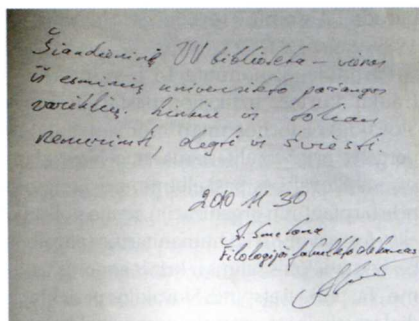 Šiandieninė VU biblioteka – vienas
iš esminių universiteto pažangos
variklių. Linkiu ir toliau
nenurimti, degti ir šviesti.
2010 11 30
A. Smetona
Filologijos fakulteto dekanas